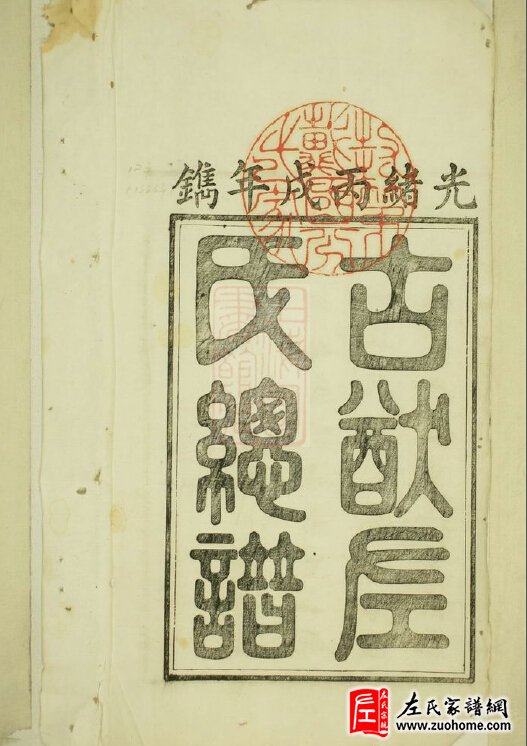 光緒丙戌年鐫
古猷左
氏總譜
左氏家譜網
www.zuohome.com